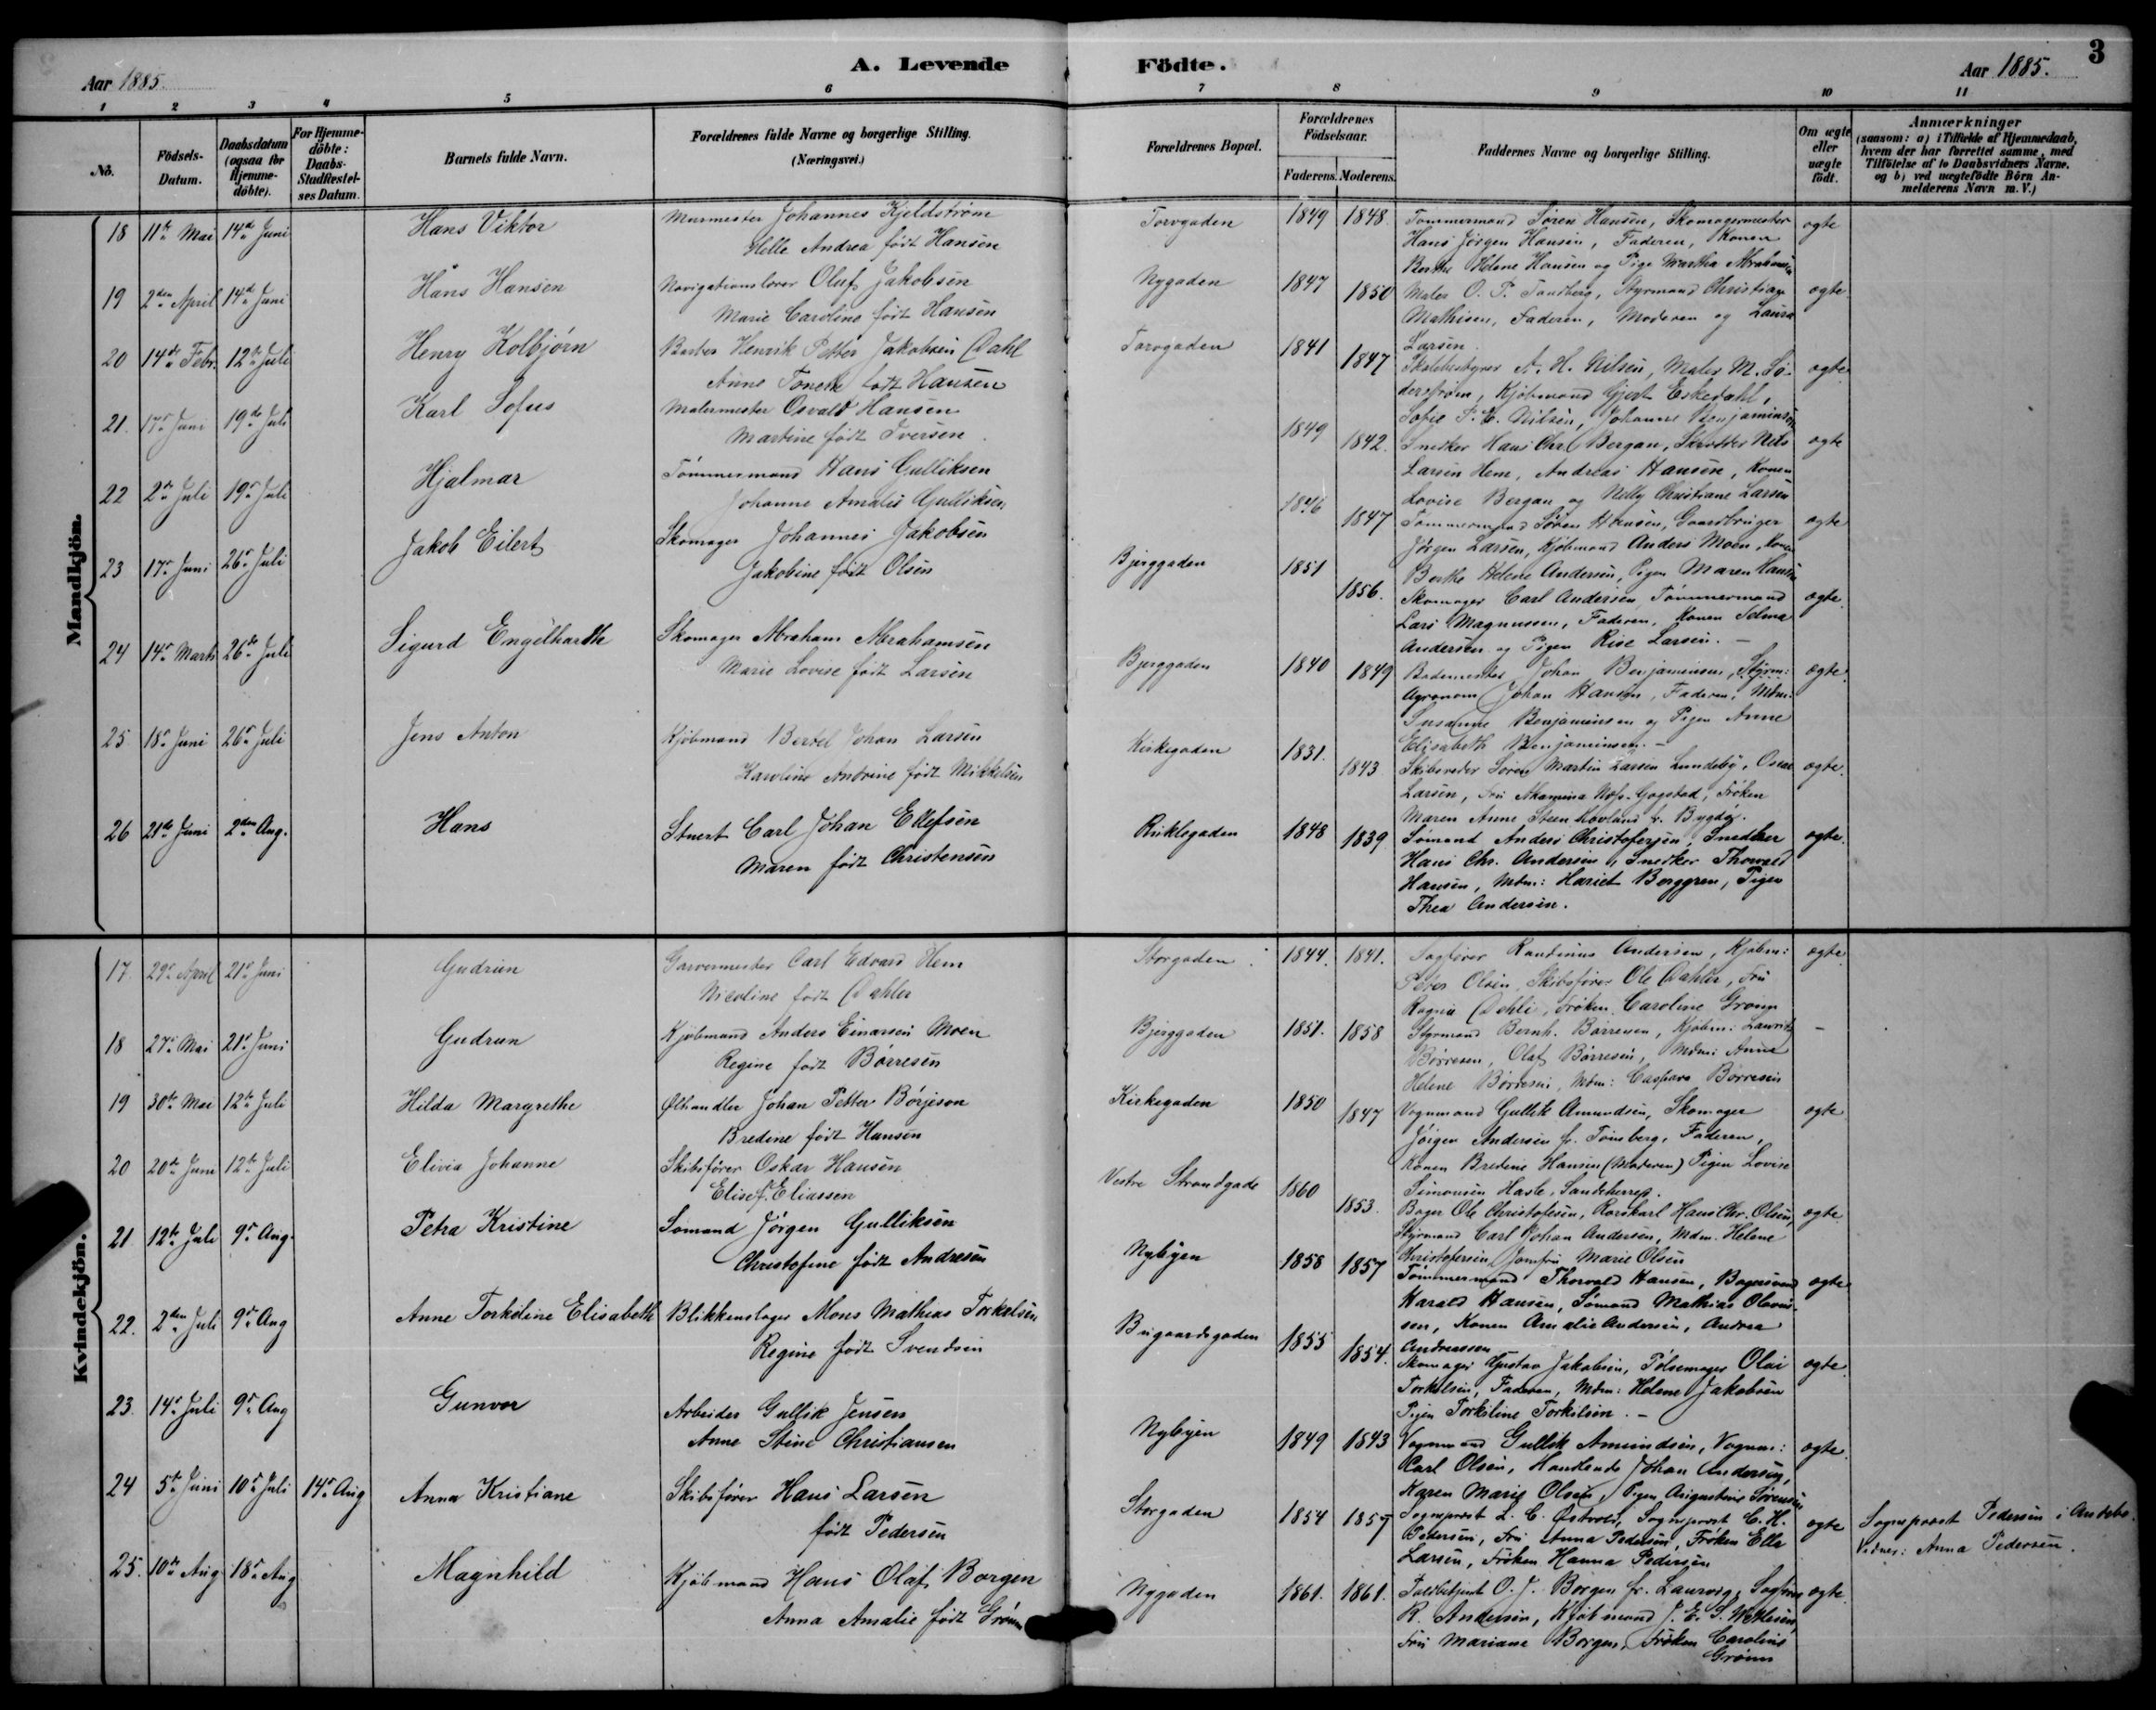 Aar 1885.
A. Levende Födte.
Aar 1885.
3
1 2 3 4 5 6 7 8 9 10 11
No.
Födsels-Datum.
Daabsdatum (ogsaa for Hjemme-döbte).
For Hjemme-döbte: Daabs-Stadfæstel-ses Datum.
Barnets fulde Navn.
Forældrenes fulde Navne og borgerlige Stilling. (Næringsvei.)
Forældrenes Bopæl.
Forældrenes Födselsaar.
Faderens. Moderens.
Faddernes Navne og borgerlige Stilling.
Om ægte eller uægte födt.
Anmærkninger
(saasom: a) i Tilfælde af Hjemmedaab, hvem der har forrettet samme, med Tilföielse af to Daabsvidners Navne, og b) ved uægtefödte Börn An-melderens Navn m. V.)
Mandkjön.
18 11te Mai 14de Juni Hans Viktor Murmester Johannes Kjeldstrøm Torvgaden 1849 1848 Tømmermand Søren Hansen, Skomagermester ægte
Helle Andrea født Hansen Hans Jørgen Hansen, Faderen, Konen
Berthe Helene Hansen og Pige Martha Abrahamsen
19 2den April 14de Juni Hans Hansen Navigationslærer Oluf Jakobsen Nygaden 1847 1850 Maler O. P. Sandberg, Styrmand Christian ægte
Marie Caroline født Hansen Mathisen, Faderen, Moderen og Laura
Larsen.
20 14de Febr. 12te Juli Henry Kolbjørn Henrik Petter Jakobsen Dahl Torvgaden 1841 1847 A. H. Nilsen, Maler M. Sø- ægte
Anne født Hansen derstrøm, Kjøbmand Gjert Eskedahl,
Sofie P. E. Nilsen, Johanne Benjaminsen
21. 17de Juni 19de Juli Karl Sofus Malermester Osvald Hansen 1849 1842. Snedker Hans Chrl Bergan, Skrædder Nils ægte
Martine født Iversen. Larsen Hem, Andreas Hansen, Konen
Lovise Bergan og Nelly Christiane Larsen
22 2den Juli 19de Juli Hjalmar Tømmermand Hans Gulliksen 1846 1847 Tømmermand Søren Hansen, Gaardbruger ægte
Johanne Amalie Gulliksen Jørgen Larsen, Kjøbmand Anders Moen, Konen
Berthe Helene Andersen, Pigen Maren Hansen
23 17de Juni 26de Juli Jakob Eilert Skomager Johannes Jakobsen Bjerggaden 1851 1856. Skomager Carl Andersen, Tømmermand ægte.
Jakobine født Olsen Lars Magnussen, Faderen, Konen Selma
Andersen og Pigen Rise Larsen. –
24 14de Marts 26de Juli Sigurd Engelhardth Skomager Abraham Abrahamsen Bjerggaden 1840 1849 Bademester Johan Benjaminsen, Styrm: ægte.
Marie Lovise født Larsen Johan Hansen, Faderen, Mdm:
Susanne Benjaminsen og Pigen Anne
Elisabeth Benjaminsen. –
25 18de Juni 26de Juli Jens Anton Kjøbmand Bertel Johan Larsen Kirkegaden 1831. 1843 Skibsreder Søren Martin Larsen Lundeby, Oscar ægte.
Karoline Andrine født Mikkelsen Larsen, Fru Gogstad, Frøken
Maren Anne Steen Hovland
26 21de Juni 2den Aug. Hans Stuert Carl Johan Ellefsen Rniklegaden 1848 1839 Sømand Anders Christofersen, Snedker ægte.
Maren født Christensen Hans Chr. Andersen, Snedker Thorvald
Hansen, Mdm: Hariet Borggren, Pigen
Thea Andersen.
Kvindekjön.
17. 29de April 21de Juni Gudrun Garvermester Carl Edvard Hem Storgaden. 1844. 1841. Sagfører Randinius Andersen, Kjøbm: ægte
Nicoline født Dahler Peter Olsen, Skibsfører Ole Dahler, Fru
Ragna Dehli, Frøken Caroline Grønn
18 27de Mai 21de Juni Gudrun Kjøbmand Anders Einarsen Moen Bjerggaden 1851. 1858 Styrmand Bernh. Børresen, Kjøbm: Lauritz –
Regine født Børresen Børresen, Olaf Børresen, Mdm: Anne
Helene Børresen, Mdm: Caspara Børresen
19 30te Mai 12te Juli Hilda Margrethe Ølhandler Johan Petter Börjeson Kirkegaden 1850 1847 Vognmand Gullik Amundsen, Skomager ægte
Bredine født Hansen Jørgen Andersen fr. Tønsberg, Faderen,
Konen Bredine Hansen (Moderen) Pigen Lovise
Simonsen Hasle, Sandeherred.
20 20de Juni 12te Juli Elivia Johanne Skibsfører Oskar Hansen Vestre Strandgade 1860 1853. Bager Ole Christofersen, Karl Hans Chr. Olsen, ægte
Elise f. Eliassen Styrmand Carl Johan Andersen, Mdm. Helene
Christofersen, Jomfru Marie Olsen
21 12te Juli 9de Aug. Petra Kristine Sømand Jørgen Gulliksen Nybyen 1858 1857 Tømmermand Thorvald Hansen, Bagersvend ægte
Christofine født Andresen Harald Hansen, Sømand Mathias Olaves-
sen, Konen Amalie Andersen, Andrea
Andreassen
22. 2den Juli 9de Aug Anne Torkeline Elisabeth Blikkenslager Mons Mathias Torkelsen Bugaardsgaden 1855 1854. Skomager Gustav Jakobsen, Pølsemager Olai ægte.
Regine født Svendsen Torkelsen, Faderen, Mdm: Helene Jakobsen
Pigen Torkiline Torkilsen. –
23. 14de Juli 9de Aug Gunvor Arbeider Gullik Jensen Nybyen 1849 1843 Vognmand Gullik Amundsen, Vognm: ægte.
Anne Stine Christiansen Carl Olsen, Handlende Johan Andersen,
Karen Marie Olsen, Pigen Augustine Sørensen
24 5te Juni 10de Juli 14de Aug Anna Kristiane Skibsfører Hans Larsen Storgaden 1854 1857 Sogneprest L. C. Østvold, Sogneprest C. H. ægte Sogneprest Pedersen i Andebo.
født Pedersen Pedersen, Fru Anna Pedersen, Frøken Ella Vidner: Anna Pedersen.
Larsen, Frøken Hanna Pedersen
25. 10de Aug 18de Aug Magnhild Kjøbmand Hans Olaf Borgen Nygaden 1861. 1861. Toldbetjent O. J. Borgen fr. Laurvig, Sagfører ægte.
Anna Amalie født Grønn R. Andersen, Kjøbmand J. E. S. Wethlesen,
Fru Mariane Borgen, Frøken Caroline
Grønn